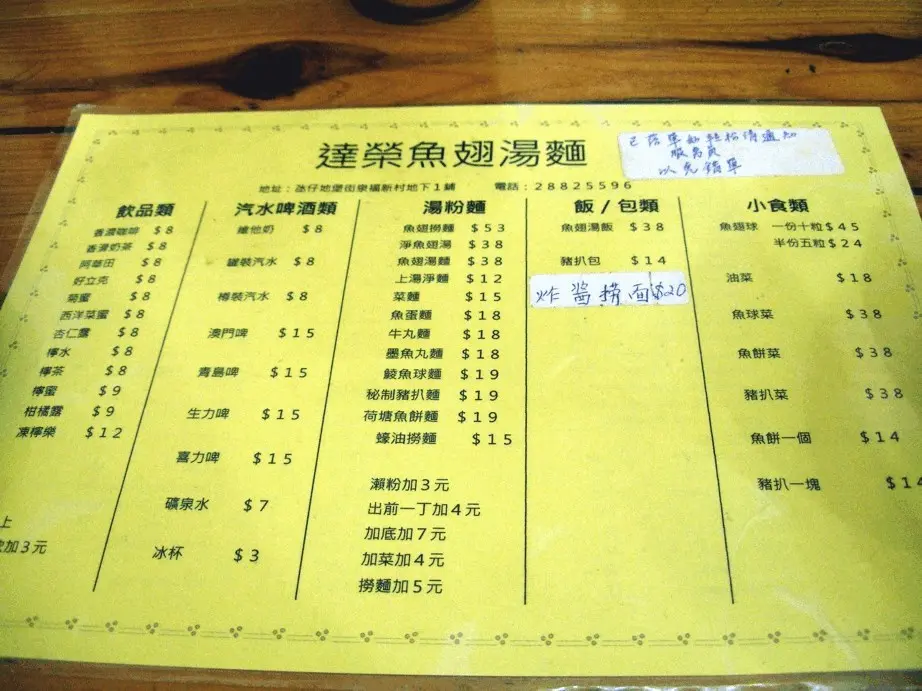 達榮魚翅湯麵
已落單如轉檯請通知
服務員
以免錯單
地址：氹仔地堡街泉福新村地下1舖 電話：28825596
飲品類
香濃咖啡 $8
香濃奶茶 $8
阿華田 $8
好立克 $8
菊蜜 $8
西洋菜蜜 $8
杏仁露 $8
檸水 $8
檸茶 $8
檸蜜 $9
柑橘露 $9
凍檸樂 $12
上
加3元
汽水啤酒類
維他奶 $8
罐裝汽水 $8
樽裝汽水 $8
澳門啤 $15
青島啤 $15
生力啤 $15
喜力啤 $15
礦泉水 $7
冰杯 $3
湯粉麵
魚翅撈麵 $53
淨魚翅湯 $38
魚翅湯麵 $38
上湯淨麵 $12
菜麵 $15
魚蛋麵 $18
牛丸麵 $18
墨魚丸麵 $18
鯪魚球麵 $19
秘制豬扒麵 $19
荷塘魚餅麵 $19
蠔油撈麵 $15
瀨粉加3元
出前一丁加4元
加底加7元
加菜加4元
撈麵加5元
飯/包類
魚翅湯飯 $38
豬扒包 $14
炸醬撈面$20
小食類
魚翅球 一份十粒$45
半份五粒$24
油菜 $18
魚球菜 $38
魚餅菜 $38
豬扒菜 $38
魚餅一個 $14
豬扒一塊 $14